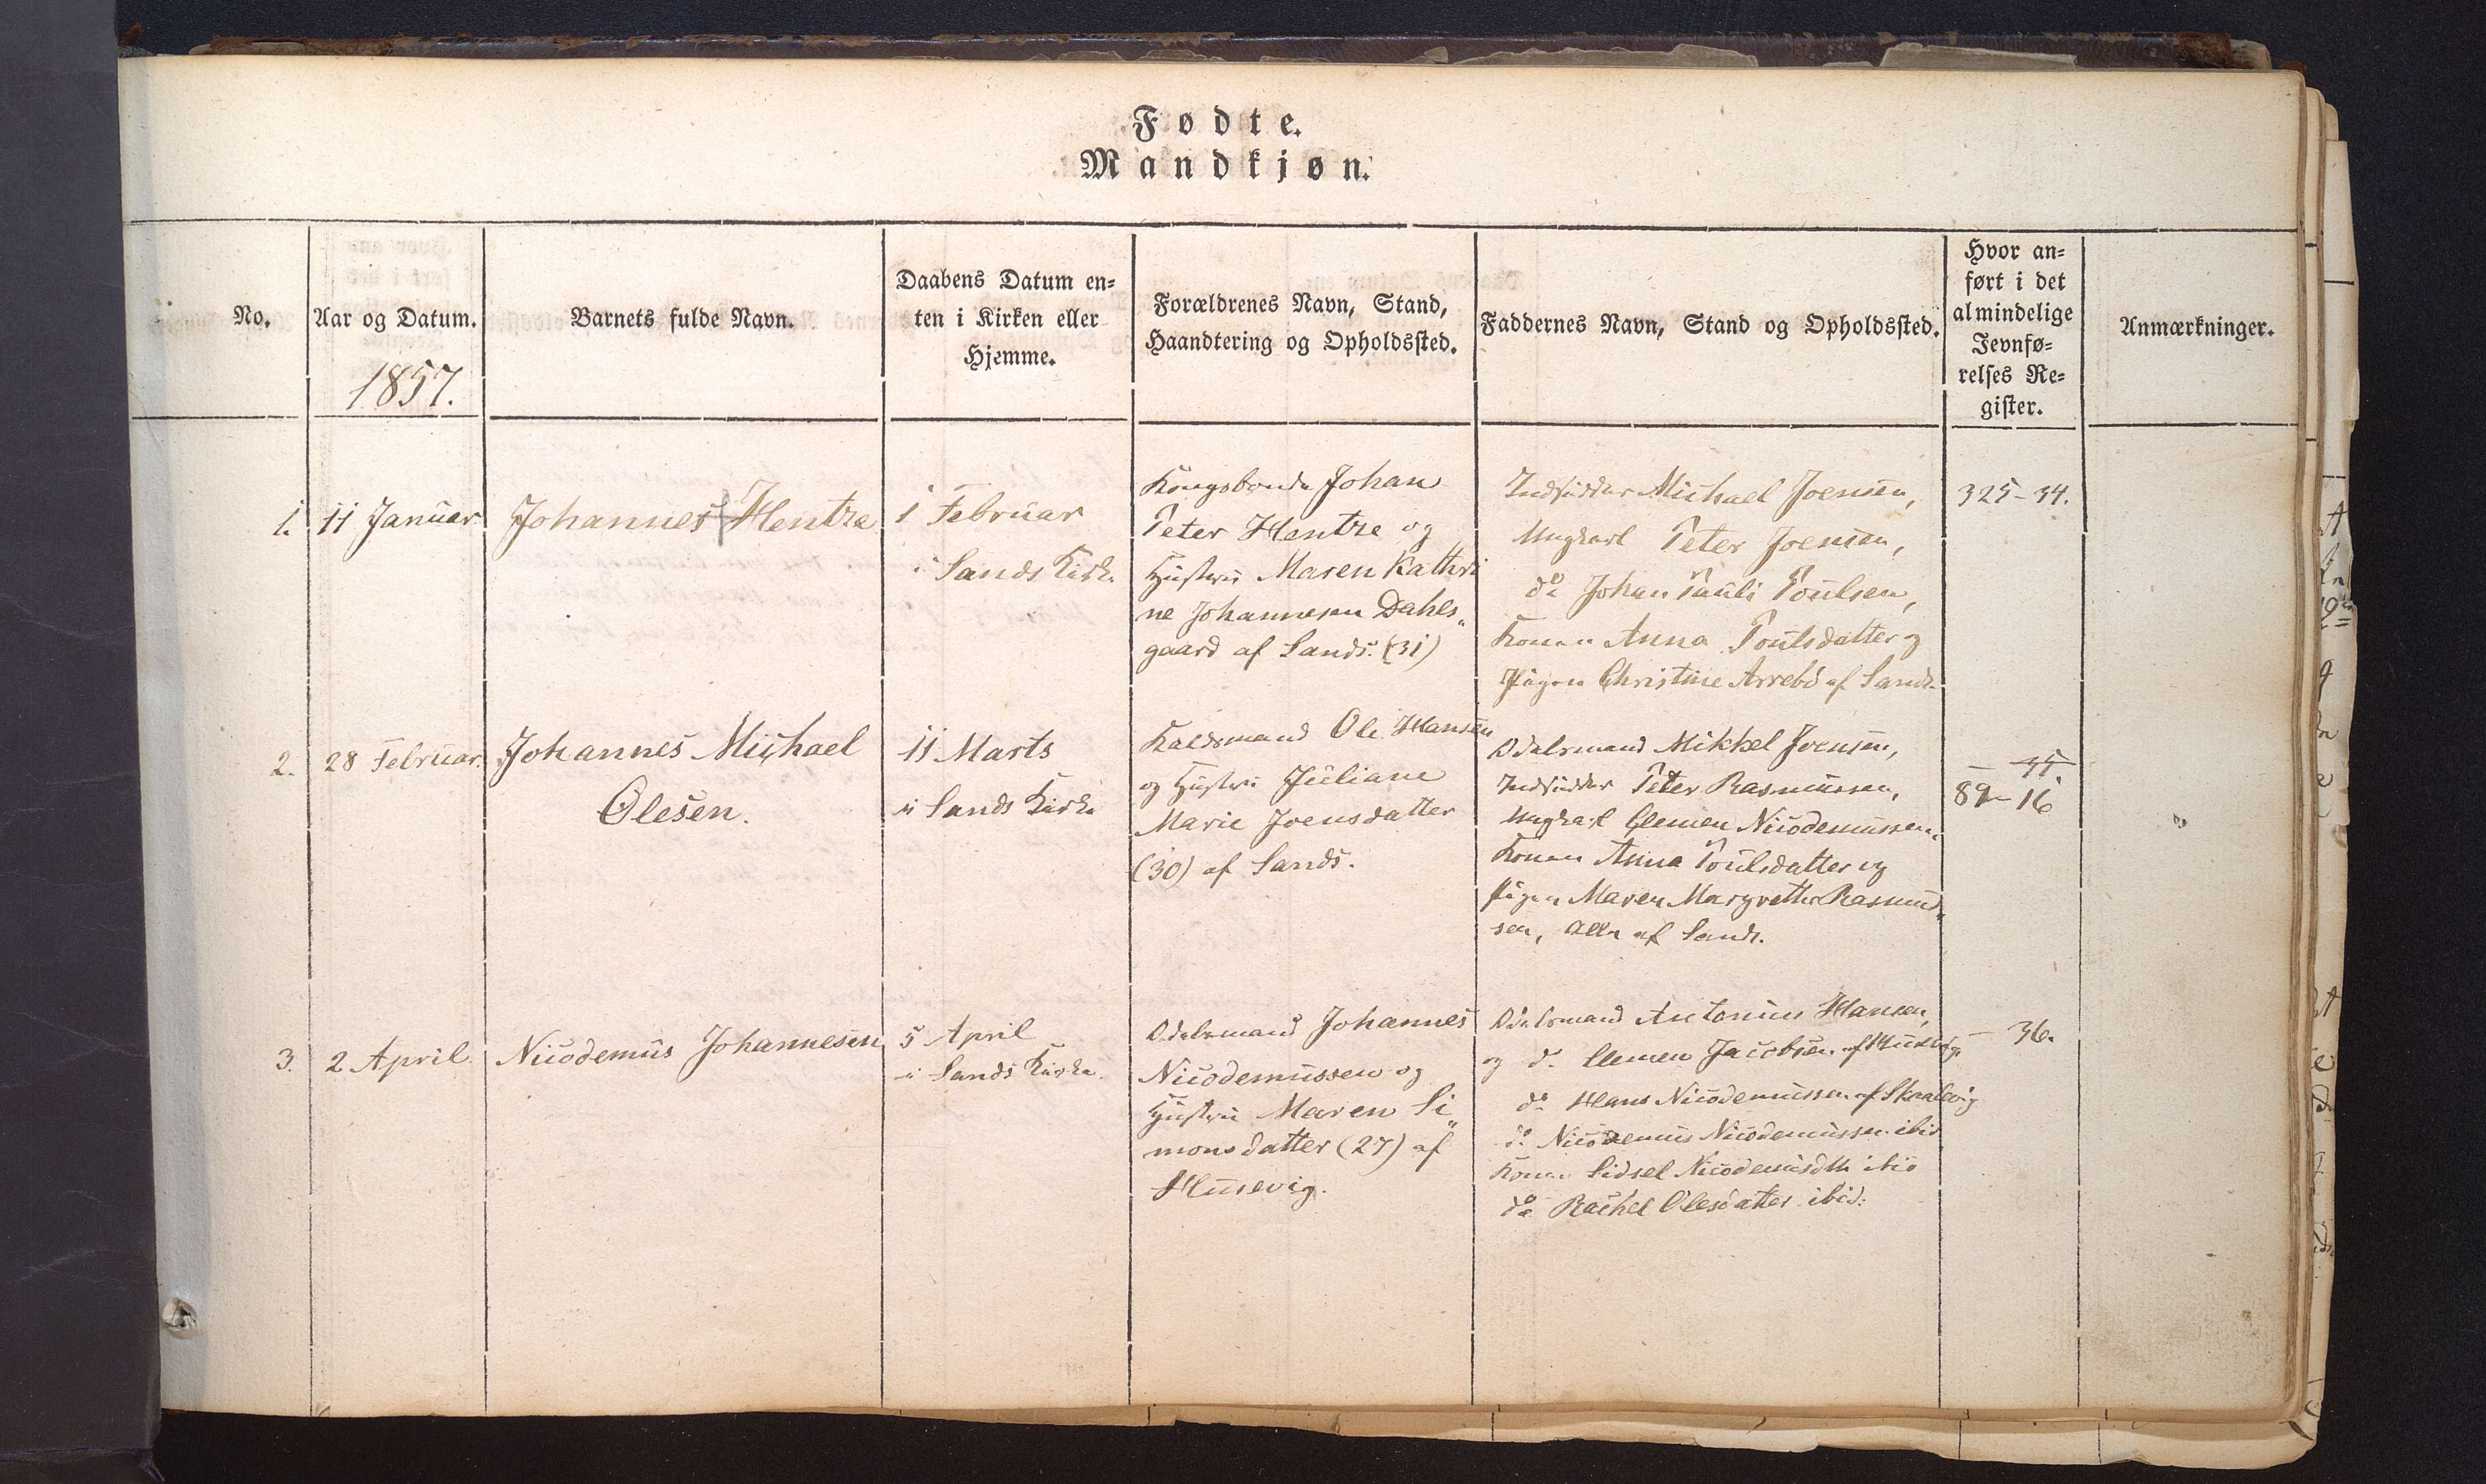 Fødte.
Mandkjøn.
No.
Aar og Datum.
1857.
Barnets fulde Navn.
Daabens Datum en=
ten i Kirken eller
Hjemme.
Forældrenes Navn, Stand,
Haandtering og Opholdssted.
Faddernes Navn, Stand og Opholdssted.
Hvor an=
ført i det
almindelige
Jevnfø=
relses Re=
gister.
Anmærkninger.
1.
11 Januar
Johannes Hentze
1 Februar
i Sands Kirke
Kongsbonde Johan
Peter Hentze og
Hustru Maren Kathri
ne Johannesen Dahls„
gaard af Sands. (31)
Indsidder Michael Joensen,
Ungkarl Peter Joensen,
do Johan Pauli Poulsen,
Konen Anna Poulsdatter og
Pigen Christine Arrebo af Sands.
325-34.
2.
28 Februar.
Johannes Michael
Olesen.
11 Marts
i Sands Kirke
Ole Hansen
og Hustru Juliane
Marie Joensdatter
(30) af Sands.
Odelsmand Mikkel Joensen,
Indsidder Peter Rasmussen,
Ungkarl Clemen Nicodemussen,
Konen Anna Poulsdatter og
Pigen Maren Margrethe Rasmus„
sen, alle af Sands.
— 35.
89-16
3.
2 April
Nicodemus Johannesen
5 April
i Sands Kirke.
Odelsmand Johannes
Nicodemussen og
Hustru Maren Si„
monsdatter (27) af
Husevig.
Odelsmand Antonius Hansen,
og do Clemen Jacobsen af Husevig
do Hans Nicodemussen af Skaalevig
do Nicodemus Nicodemussen ibid
Konen Sidsel Nicodemusdtr ibid
do Rachel Olesdatter ibid.
— 36.